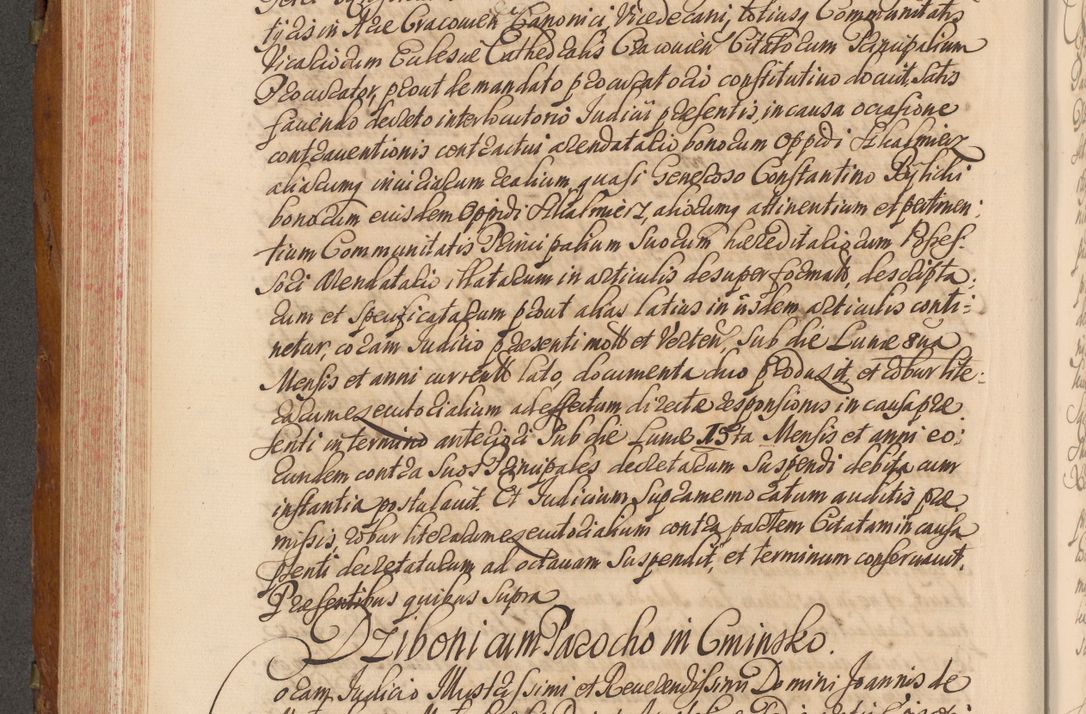 tysis in Arce Cracovien Canonici, Vicedecani, totiusq Communitatis
Vicaliorum Eclesiæ Cathedralis Cracovien Citatorum Principalium
Procurator, prout de mandato procuratorio constitutivo docuit, satis
favendo decreto interlocutorio Judicii præsentis, in causa occasione
contraventionis contractus arendatarii bonorum Oppidi
aliarumq iniuriarum realium, quasi Generoso Constantino
bonorum eiusdem Oppidi aliorumq attinentium et pertinen:
tium Communitatis Principalium Suorum hæreditariorum Posses-
sori Arendatario, illatarum in articulis desuper formatt, descripta,
rum et Specificatarum prout alias latius in iisdem articulis conti-
netur, coram Judicio præsenti mott et Verten, Sub die Lunæ 8va
Mensis et anni currentt lato, documenta duo produxit, et robur lite:
rarum executorialium ad effectum directæ responsionis in causa præ
senti in termino anteriori Sub die Lunæ 15ta Mensis et anni eo:
rundem contra Suos Principales decretarum Suspendi debita cum
instantia postulavit. Et Judicium Supramemoratum auditis præ
missis, robur literarum executorialium contra partem Citatam in causa
psenti decretatarum ad octavam Suspendit, et terminum conservavit.
Præsentibus quibus supra
Dziboni cum Parocho in Gminsko.
oram Judicio Illustrissimi et Reverendissimi Domini Joannis de